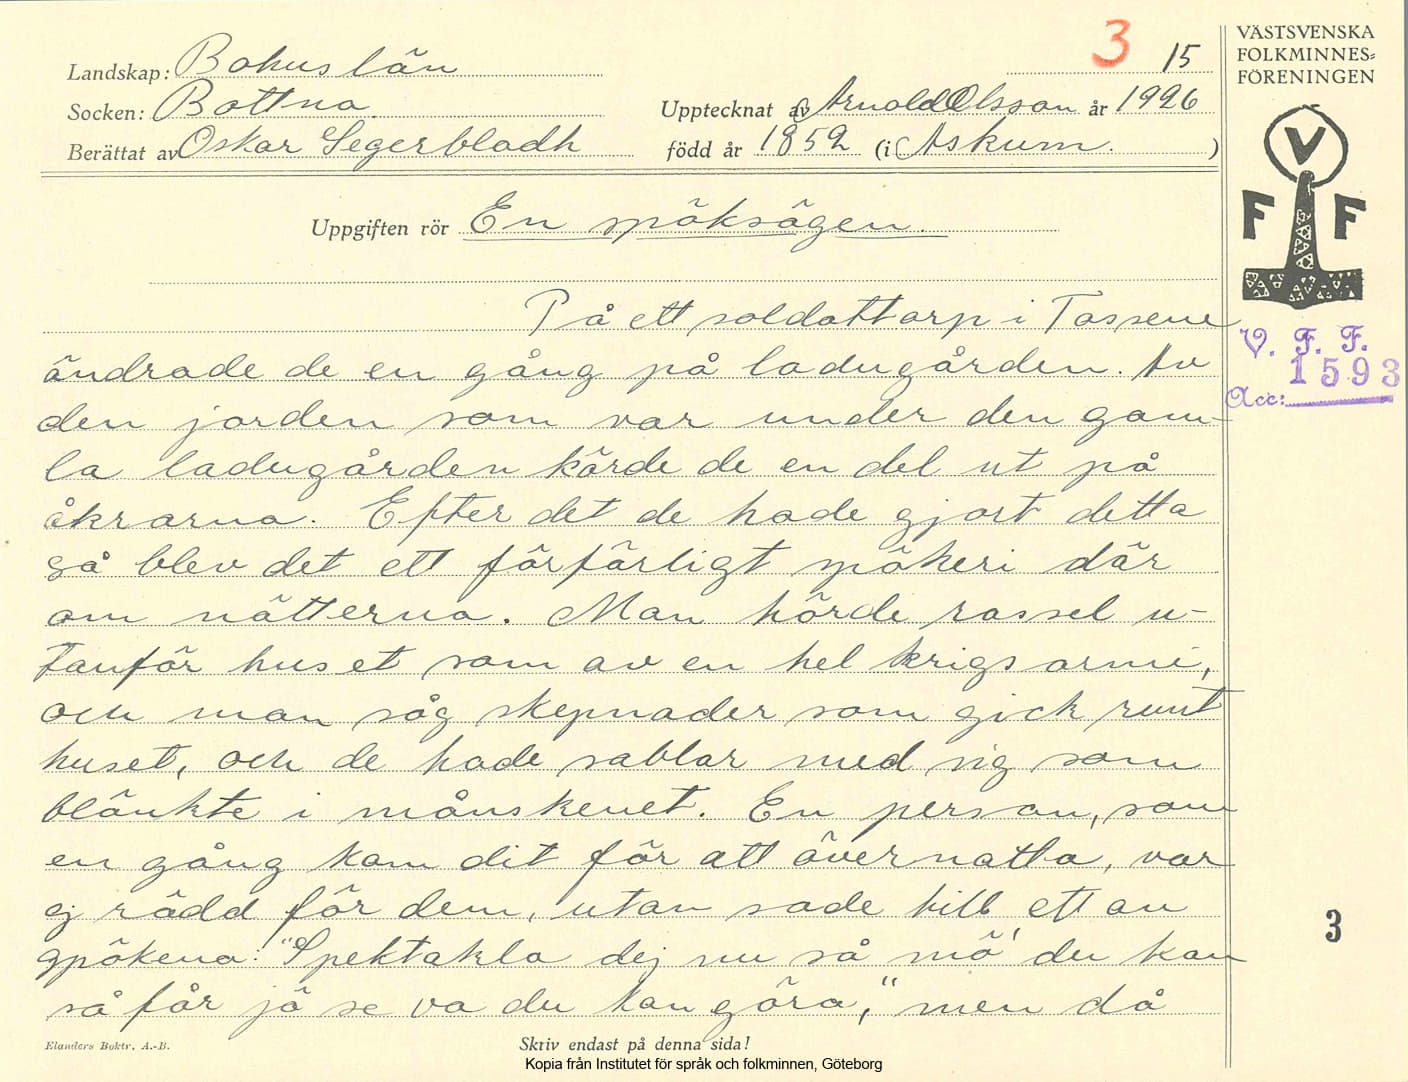 3 15
VÄSTSVENSKA
FOLKMINNES=
FÖRENINGEN
Landskap: Bohuslän
Socken: Bottna Upptecknat av Arnold Olsson år 1926
Berättat av Oskar Segerbladh född år 1852 (i Askum. )
V
F F
Uppgiften rör En spöksägen.
På ett soldattorp i Tossene
ändrade de en gång på ladugården. Av
den jorden som var under den gam-
la ladugården körde de en del ut på
åkrarna. Efter det de hade gjort detta
så blev det ett förfärligt spökeri där
om nätterna. Man hörde rassel u-
tanför huset som av en hel krigsarmé,
och man såg skepnader som gick runt
huset, och de hade sablar med sig som
blänkte i månskenet. En person, som
en gång kom dit för att övernatta, var
ej rädd för dem, utan sade till ett av
spökena: "Spektakla dej nu så mö' du kan
så får jä se va du kan göra," men då
V. F. F.
Acc: 1593
3
Elanders Boktr. A.-B.
Skriv endast på denna sida!
Kopia från Institutet för språk och folkminnen, Göteborg